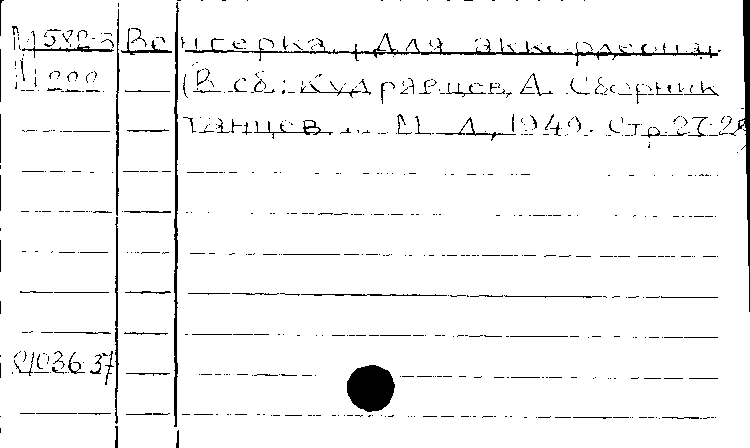 М 582-3 Венгерка. Для аккордеона.
(В сб.: Кудрявцев, А. Сборник
танцев... М.-Л., 1949. Стр. 27-28